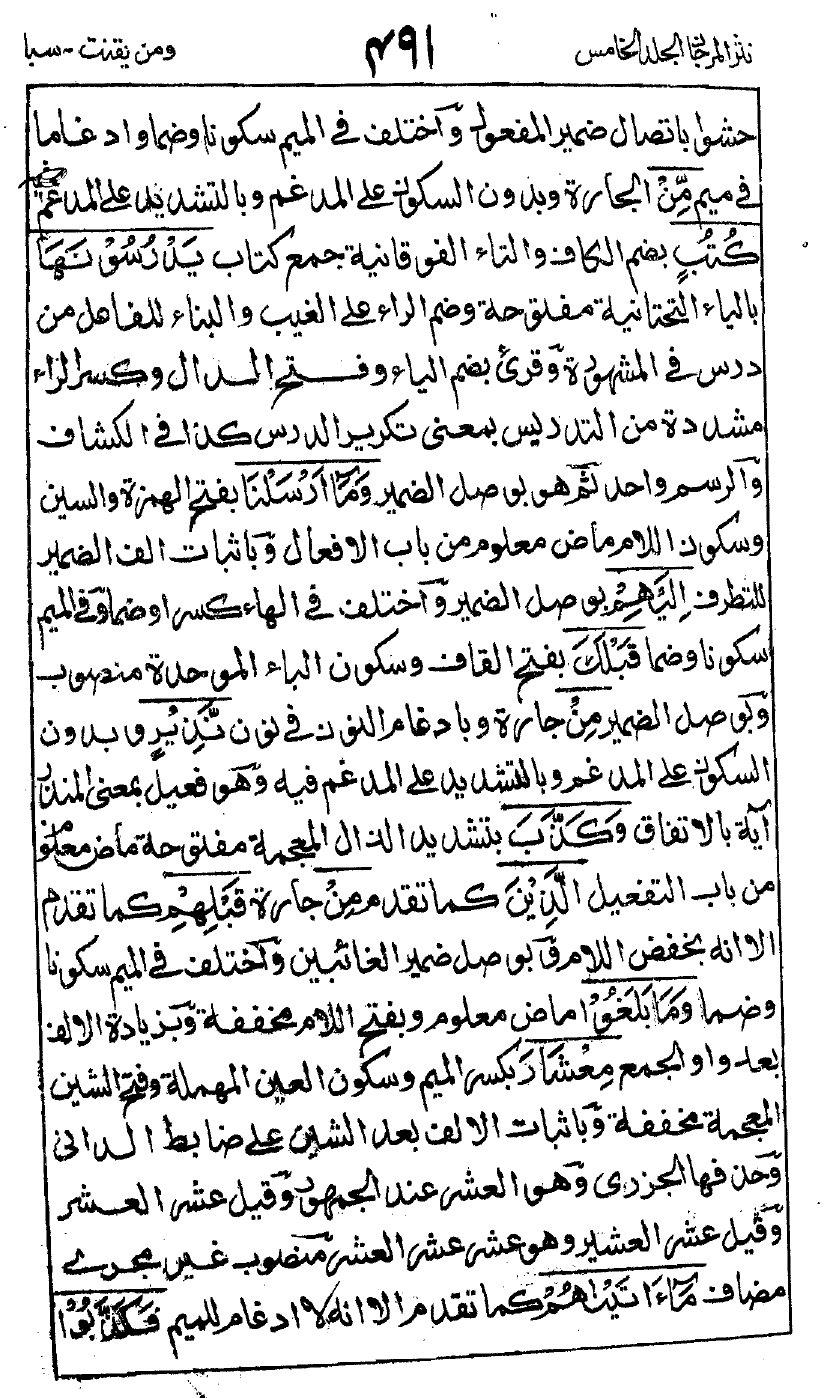 نثر المرجان الجلد الخامس ۴۹۱ ومن يقنت - سبا
حشوا باتصال ضمير المفعول وّاختلف في الميم سكونا وضما وادغاما
في ميم مِّنْ الجارة وبدون السكون على المدغم وبالتشديد على المدغم فيه
كُتُبٍ بضم الكاف والتاء الفوقانية جمع كتاب يَدْرُسُوْنَهَا
بالياء التحتانية مفتوحة وضم الراء على الغيب والبناء للفاعل من
درس في المشهورة وّقرئ بضم الياء وفتح الدال وكسر الراء
مشددة من التدريس بمعنى تكرير الدرس كذا في الكشاف
وّالرسم واحد ثم هو بوصل الضمير وَمَآ اَرْسَلْنَا بفتح الهمزة والسين
وسكون اللام ماض معلوم من باب الافعال وّباثبات الف الضمير
للتطرف اِلَيْهِمْ بوصل الضمير وّاختلف في الهاء كسرا وضما وّفي الميم
سكونا وضما قَبْلَكَ بفتح القاف وسكون الباء الموحدة منصوب
وّبوصل الضمير مِنْ جارة وبادغام النون في نون نَّذِيْرٍ وبدون
السكون على المدغم وبالتشديد على المدغم فيه وّهو فعيل بمعنى المنذر
آية بالاتفاق وَكَذَّبَ بتشديد الذال المعجمة مفتوحة ماض معلوم
من باب التفعيل الَّذِيْنَ كما تقدم مِنْ جارة قَبْلِهِمْ كما تقدم
الا انه بخفض اللام وّبوصل ضمير الغائبين وّاختلف في الميم سكونا
وضما وَمَا بَلَغُوْا ماض معلوم وبفتح اللام مخففة وّبزيادة الالف
بعد واو الجمع مِعْشَارَ بكسر الميم وسكون العين المهملة وفتح الشين
المعجمة مخففة وّباثبات الالف بعد الشين على ضابط الداني
وّحذفها الجزري وّهو العشر عند الجمهور وّقيل عشر العشر
وّقيل عشر العشير وهو عشر عشر العشر منصوب غير مجرے
مضاف مَآ ءَاتَيْنٰهُمْ كما تقدم الا انه لا ادغام للميم فَكَذَّبُوْا